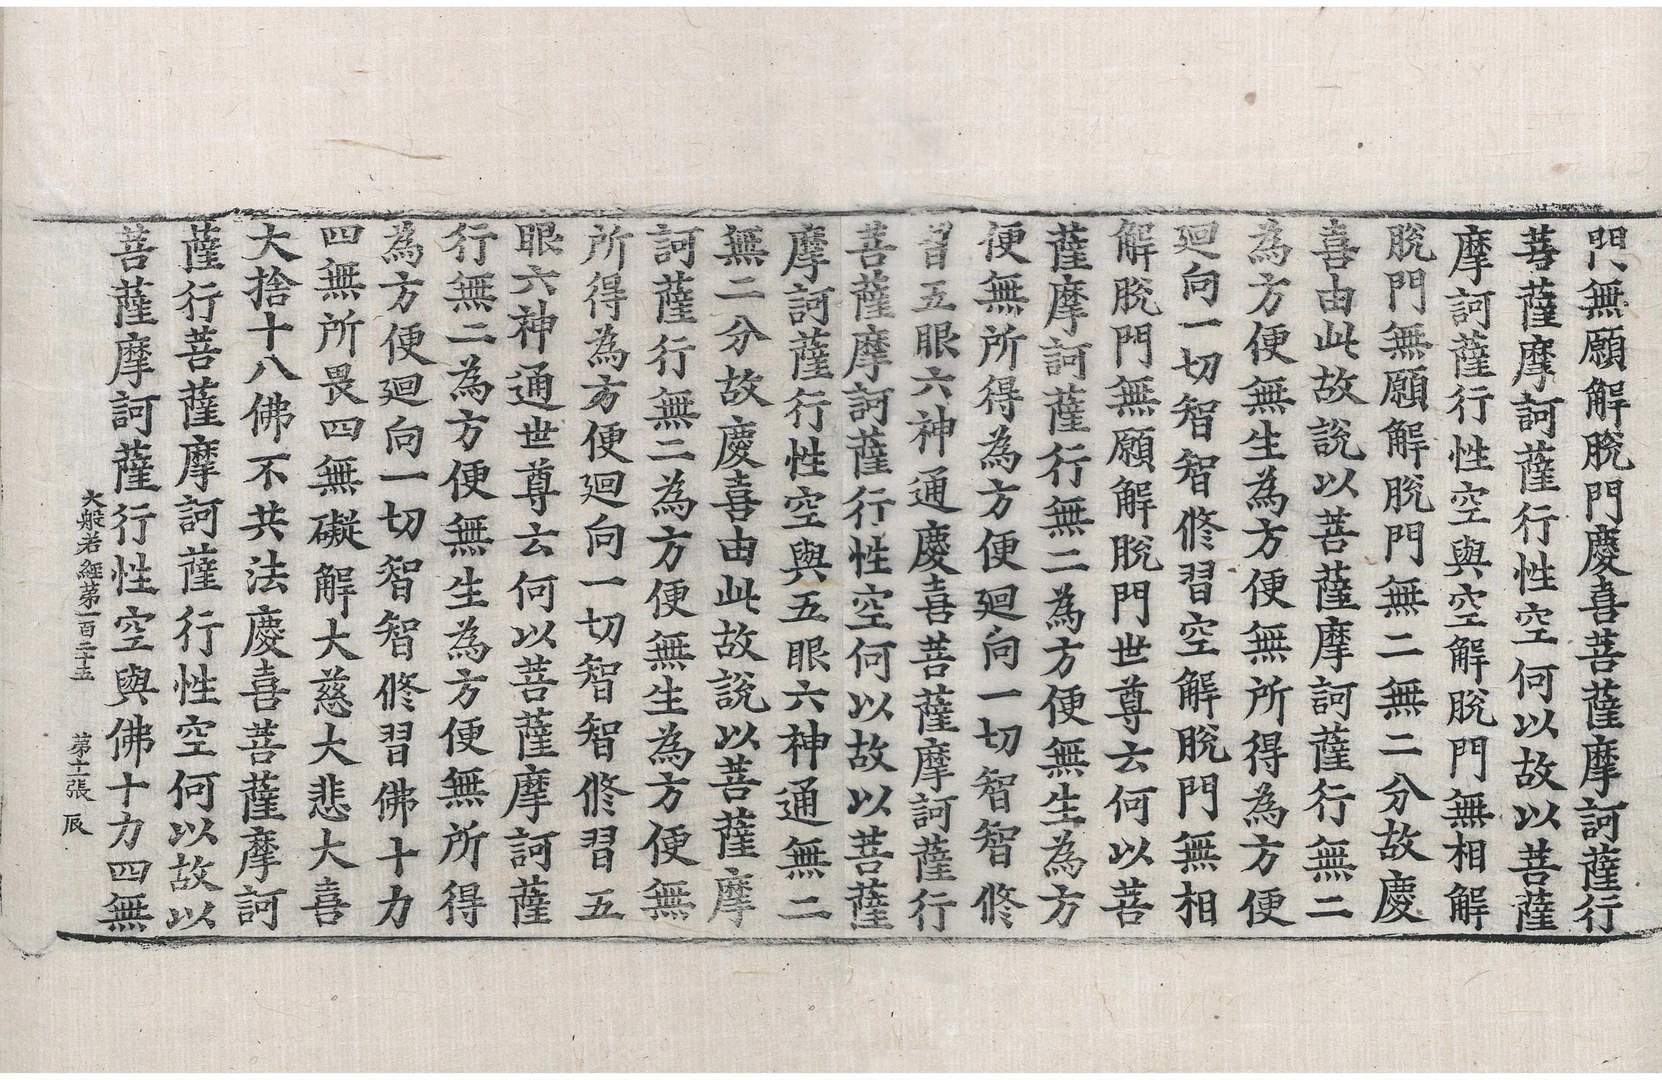 門無願解脫門慶喜菩薩摩訶薩行
菩薩摩訶薩行性空何以故以菩薩
摩訶薩行性空與空解脫門無相解
脫門無願解脫門無二無二分故慶
喜由此故說以菩薩摩訶薩行無二
為方便無生為方便無所得為方便
迴向一切智智修習空解脫門無相
解脫門無願解脫門世尊云何以菩
薩摩訶薩行無二為方便無生為方
便無所得為方便迴向一切智智修
習五眼六神通慶喜菩薩摩訶薩行
菩薩摩訶薩行性空何以故以菩薩
摩訶薩行性空與五眼六神通無二
無二分故慶喜由此故說以菩薩摩
訶薩行無二為方便無生為方便無
所得為方便迴向一切智智修習五
眼六神通世尊云何以菩薩摩訶薩
行無二為方便無生為方便無所得
為方便迴向一切智智修習佛十力
四無所畏四無礙解大慈大悲大喜
大捨十八佛不共法慶喜菩薩摩訶
薩行菩薩摩訶薩行性空何以故以
菩薩摩訶薩行性空與佛十力四無
大般若經第一百二十五 第十一張 辰